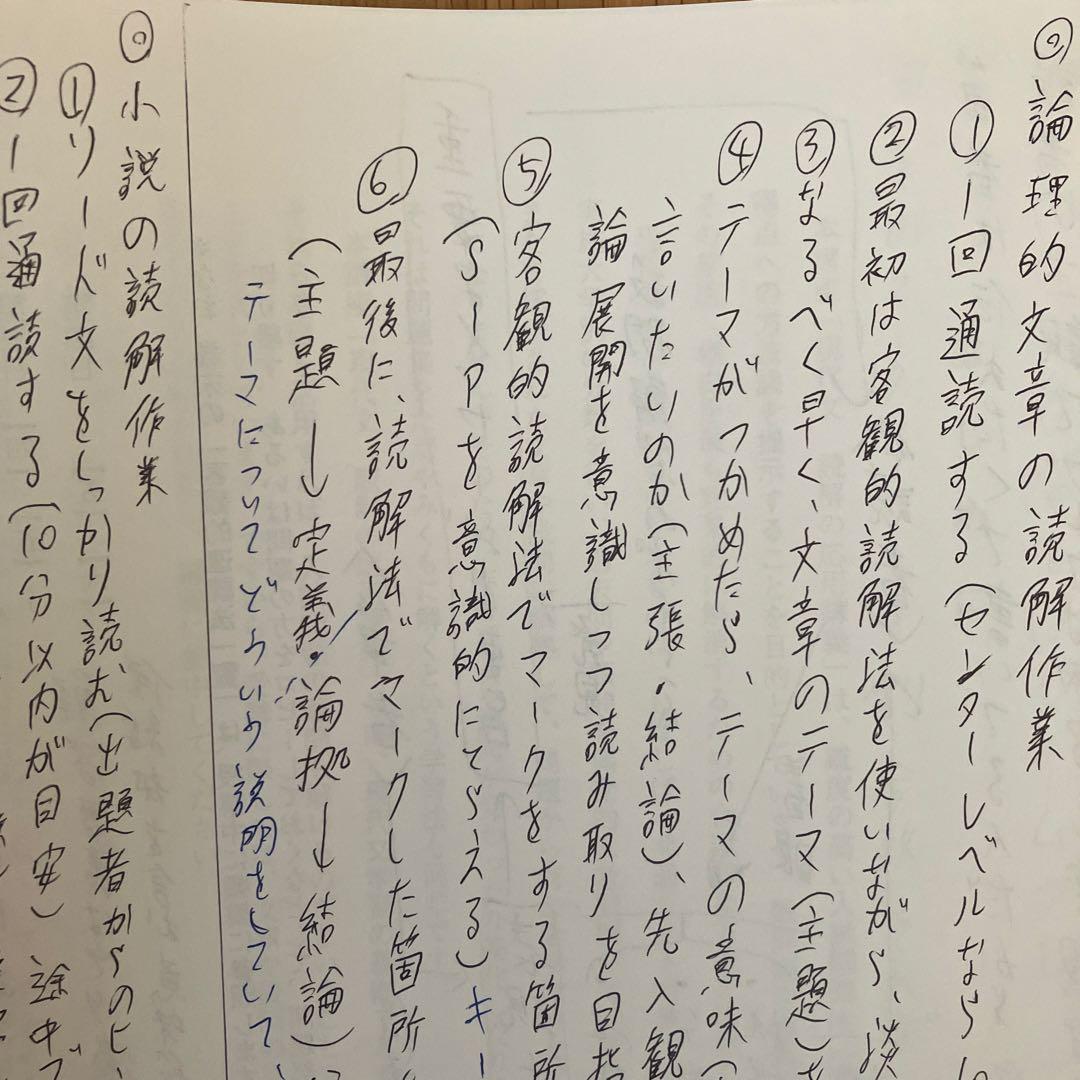 ◎論理的文章の読解作業
①一回通読する(センターレベルなら
②最初は客観的読解法を使いながら、淡
③なるべく早く、文章のテーマ(主題)を
④テーマがつかめたら、テーマの意味(
言いたいのか(主張・結論)、先入観
論展開を意識しつつ読み取りを目指
⑤客観的読解法でマークをする箇所
(S-Pを意識的にとらえる)キー
⑥最後に、読解法でマークした箇所
(主題→定義・論拠→結論)
テーマについてどういう説明をしていて、
◎小説の読解作業
①リード文をしっかり読む(出題者からのヒ
②一回通読する(10分以内が目安)途中で